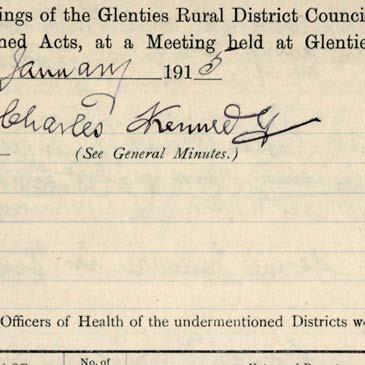 ings of the Glenties Rural District Counci
ned Acts, at a Meeting held at Glentie
January 1915
Charles Kennedy
(See General Minutes.)
Officers of Health of the undermentioned Districts w
No. of